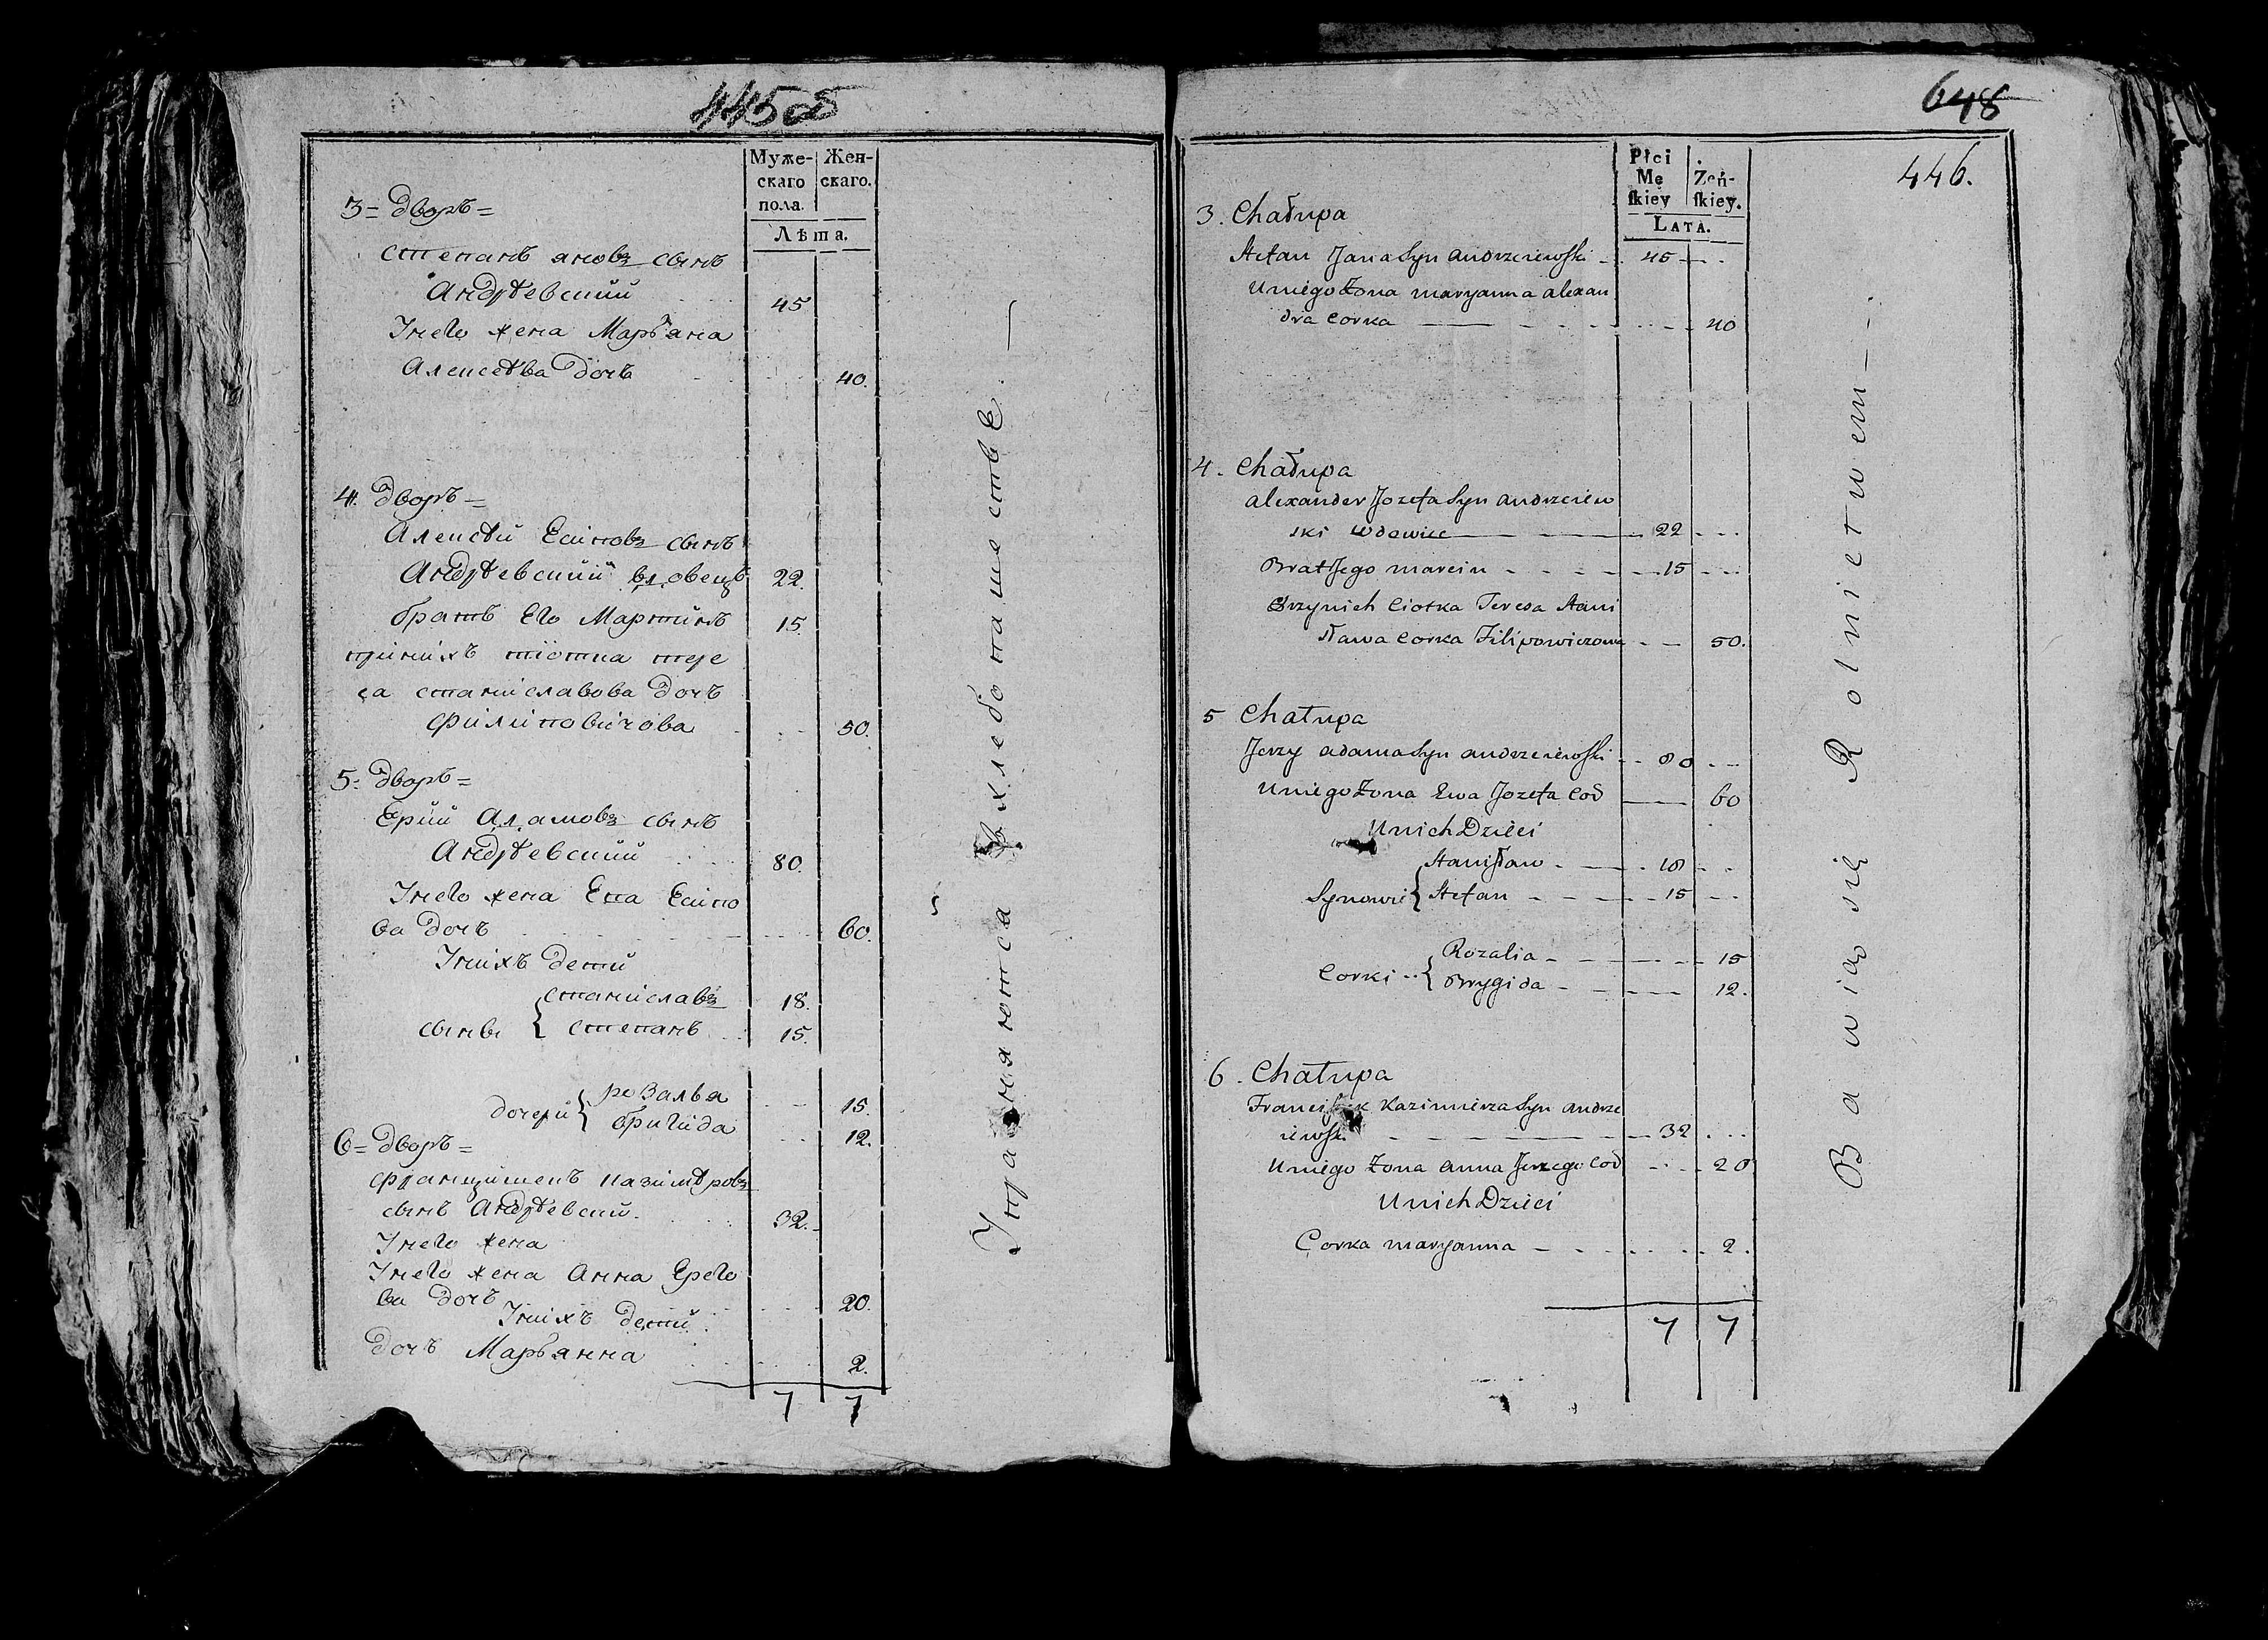 445об
Муже-
скаго
пола.
Жен-
скаго.
Лѣта.
3= Дворъ=
Степанъ яновъ сынъ
Андрѣевский 45
Унего жена Марьяна
Алексѣва Дочь 40.
4. Дворъ=
Алексѣй Есиповъ сынъ
Андрѣевский вдовецъ 22.
братъ Его Мартинъ 15.
принихъ тіотка тере
са станиславова Дочъ
филиповичова 50.
5= Дворъ=
Ерий Адамовъ сынъ
Андрѣевский 80.
Унего жена Ева Есипо
ва Дочъ 60.
Унихъ Дети
сынви { станиславъ 18.
степанъ 15.
дочери { розалья 15.
бригида 12.
6= Дворъ=
францишекъ казимѣровъ
сынъ Андрѣевский 32.
Унего жена
Унего жена Анна Ерего
ва Дочъ 20.
Унихъ Дети
Дочъ Марьянна 2.
7 7
Упражняются в хлебопашестве.
648
446.
Płci
Mę
ſkiey
Żeń-
ſkiey.
LATA.
3. Chałupa
Stefan Jana Syn Andrzeiewski 45
U niego Żona Maryanna Alexan
dra Corka 40
4. Chałupa
Alexander Jozefa Syn Andrzeiew
ski Wdowiec 22
Brat Jego Marcin 15
Przy nich Ciotka Teresa Stani
sława Corka Filipowiczowa 50.
5 Chałupa
Jerzy Adama Syn Andrzeiewski 80
U niego Żona Ewa Jozefa Cod 60
U nich Dzieci
Synowie { Stanisław 18
Stefan 15
Corki { Rozalia 15
Brygida 12.
6. Chałupa
Franciszek Kazimierza Syn Andrze
iewski 32
U niego Żona Anna Jerzego Cod 20
U nich Dzieci
Corka Maryanna 2.
7 7
Bawią się Rolnictwem